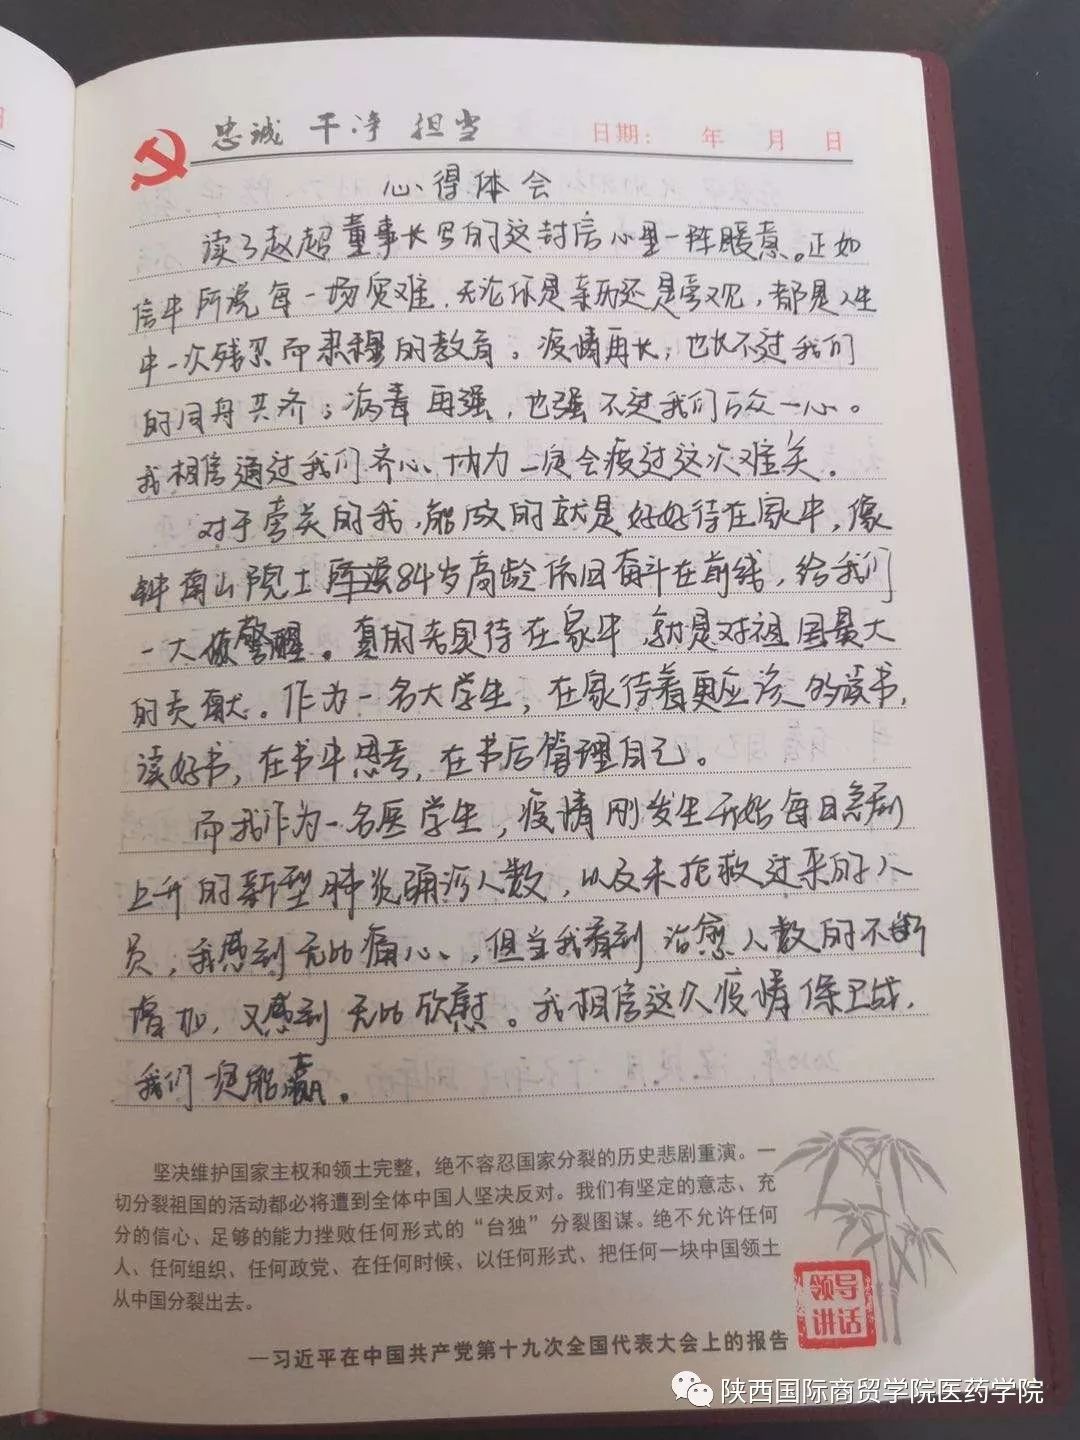 忠诚 干净 担当 日期： 年 月 日
心得体会
读了赵超董事长写的这封信心里一阵暖意。正如
信中所说每一场灾难，无论你是亲历还是旁观，都是人生
中一次残忍而柔穆的教育。疫情再长，也长不过我们
的同舟共济；病毒再强，也强不过我们万众一心。
我相信通过我们齐心协力一定会度过这次难关。
对于旁关的我，能做的就是好好待在家中，像
钟南山院士 84岁高龄依旧奋斗在前线，给我们
一大 警醒。真的老实待在家中，就是对祖国最大
的贡献。作为一名大学生，在家待着更应该多读书，
读好书，在书中思考，在书后管理自己。
而我作为一名医学生，疫情刚发生开始每日急剧
上升的新型肺炎确诊人数，以及未抢救过来的人
员，我感到无比痛心、，但当我看到治愈人数的不断
增加，又感到无比欣慰。我相信这久疫情保卫战，
我们一定能赢。
坚决维护国家主权和领土完整，绝不容忍国家分裂的历史悲剧重演。一
切分裂祖国的活动都必将遭到全体中国人坚决反对。我们有坚定的意志、充
分的信心、足够的能力挫败任何形式的“台独”分裂图谋。绝不允许任何
人、任何组织、任何政党、在任何时候、以任何形式、把任何一块中国领土
从中国分裂出去。
—习近平在中国共产党第十九次全国代表大会上的报告
领导
讲话
陕西国际商贸学院医药学院